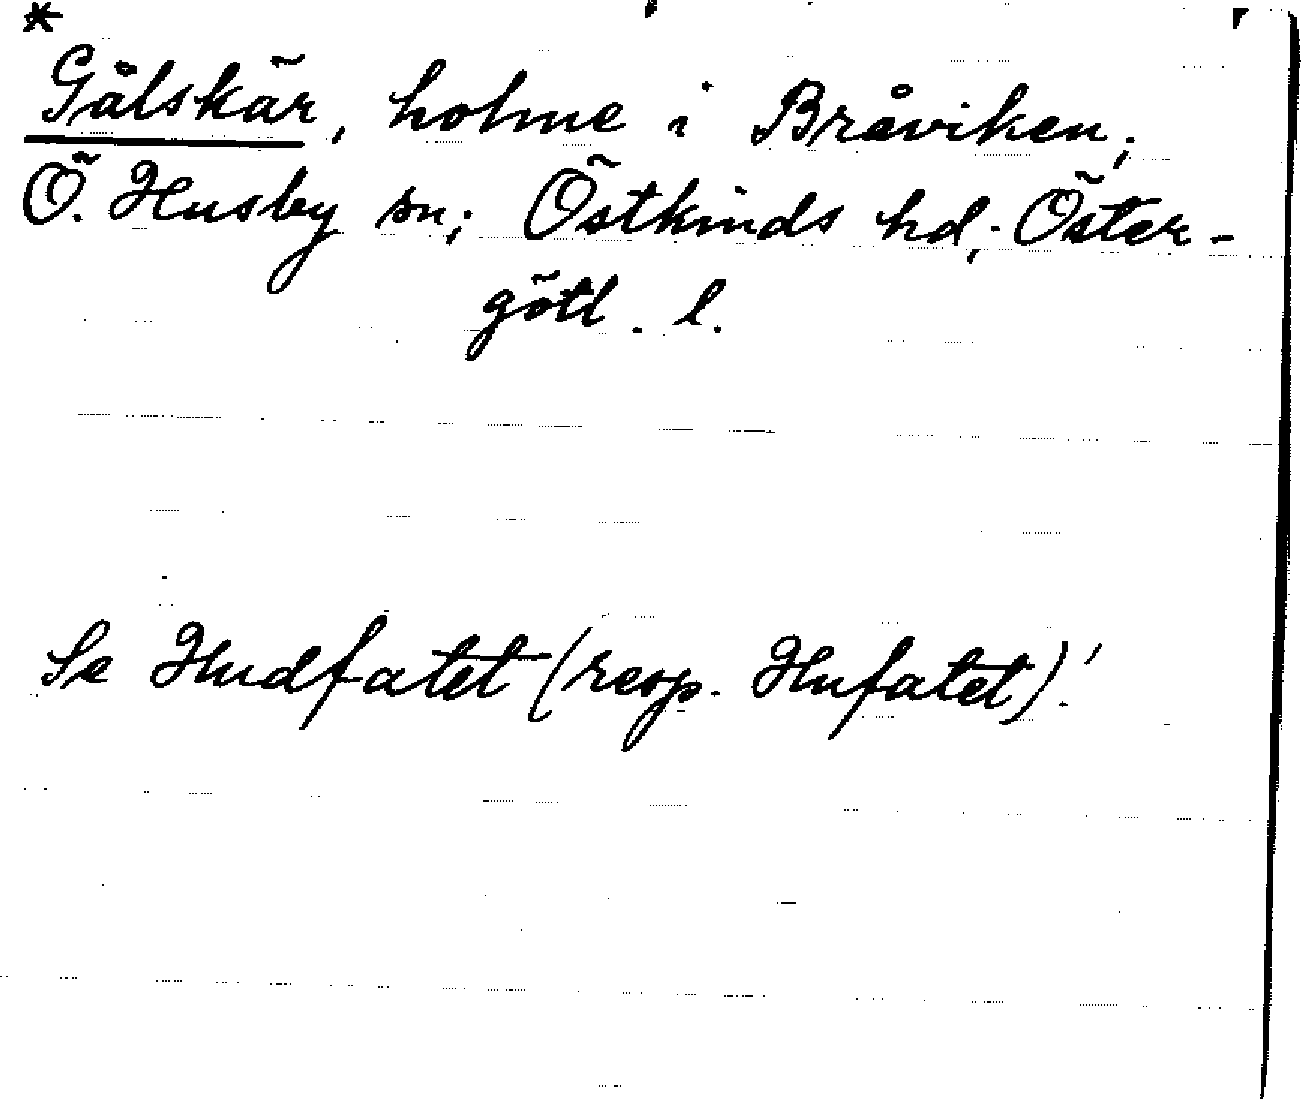 *
Gälskär, holme i Bråviken;
Ö. Husby sn; Östkinds hd; Öster-
götl. l.
Se Hudfatet (resp. Hufatet)!